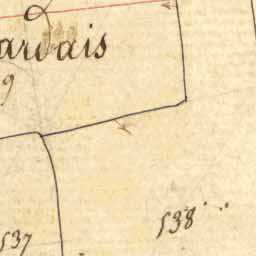 ardais
9
538
537